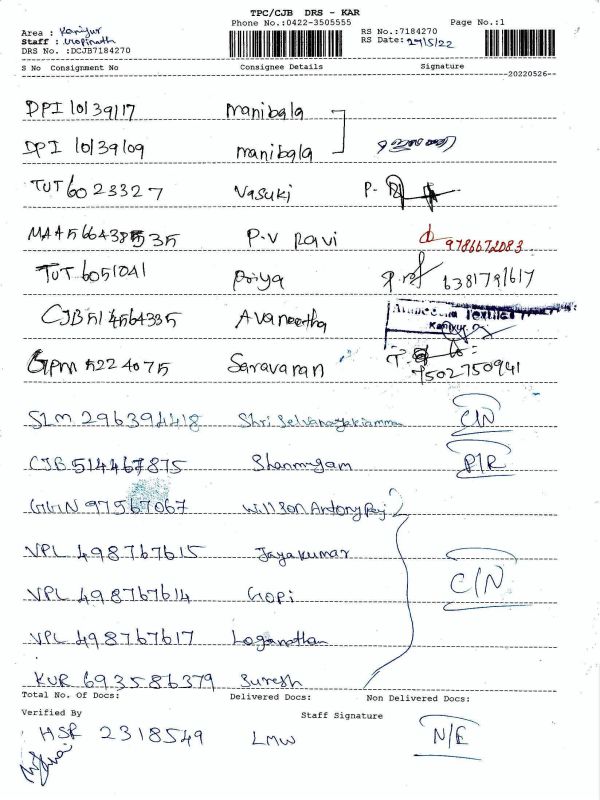 TPC/CJB DRS - KAR
Phone No.:0422-3505555 Page No.:1
Area : Kaniyur RS No.:7184270
Staff : Gopinath RS Date: 27/5/22
DRS No :DCJB7184270
S No Consignment No Consignee Details Signature
--20220526--
DPI 10/39117 Manibala
DPI 10/39109 Manibala
TUT 6023327 Vasuki P.
MAA 566438 535 P.V Ravi 9786672083
TUT 6051041 Priya 6381791617
CJB 514564335 Avaneetha Textiles Kaniyur
GPM 5224075 Saravanan 7502750941
SLM 296394418 Shri Selvanayakiamman C/N
CJB 514467875 Shanmugam P/R
GGN 97567067 Willson Antony Raj
VPL 498767615 Jayakumar
VPL 498767614 Gopi C/N
VPL 498767617 Loganathan
KUR 693586379 Suresh
Total No. Of Docs: Delivered Docs: Non Delivered Docs:
Verified By Staff Signature
HSR 2318549 LMW N/E